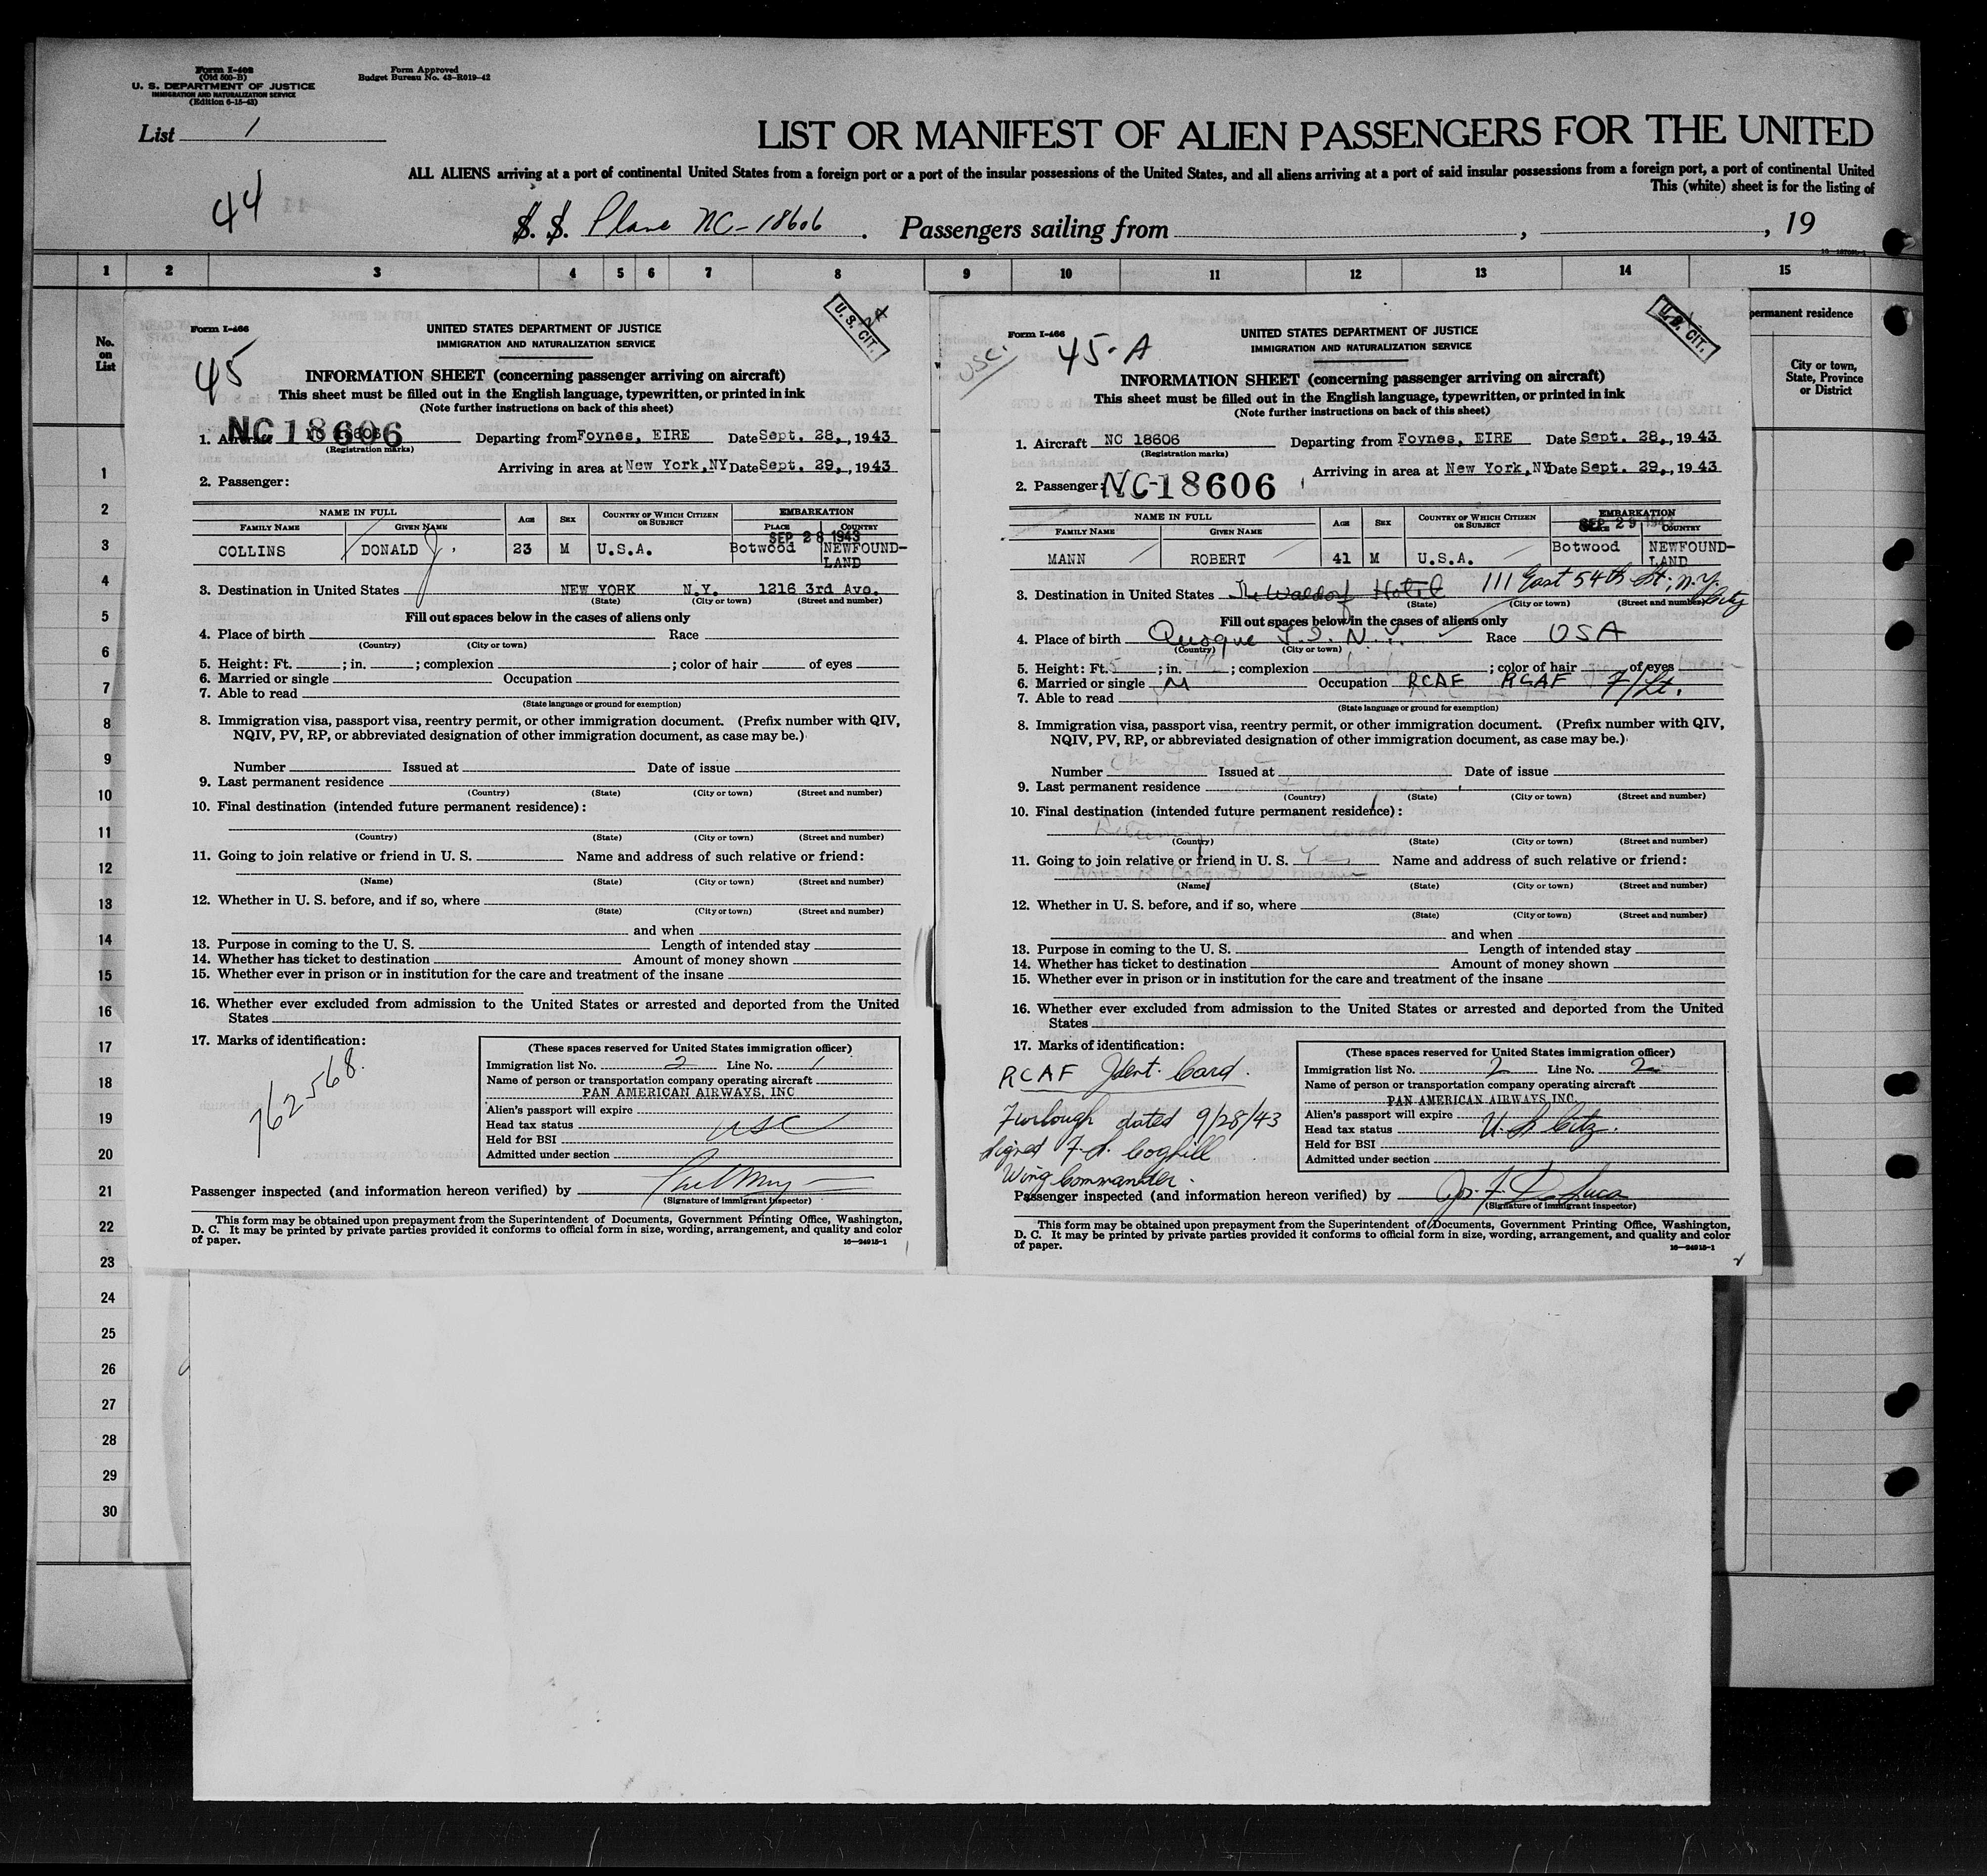 Form I-402
(Old 500-B)
U. S. DEPARTMENT OF JUSTICE
IMMIGRATION AND NATURALIZATION SERVICE
(Edition 6-15-43)
Form Approved
Budget Bureau No. 43-R019-42
List 1
LIST OR MANIFEST OF ALIEN PASSENGERS FOR THE UNITED
ALL ALIENS arriving at a port of continental United States from a foreign port or a port of the insular possessions of the United States, and all aliens arriving at a port of said insular possessions from a foreign port, a port of continental United
This (white) sheet is for the listing of
44
S. S. Plane NC-18606 . Passengers sailing from , , 19
1 2 3 4 5 6 7 8 9 10 11 12 13 14 15
No.
on
List
permanent residence
City or town,
State, Province
or District
1
2
3
4
5
6
7
8
9
10
11
12
13
14
15
16
17
18
19
20
21
22
23
24
25
26
27
28
29
30
Form I-466
45
U. S. CIT.
UNITED STATES DEPARTMENT OF JUSTICE
IMMIGRATION AND NATURALIZATION SERVICE
INFORMATION SHEET (concerning passenger arriving on aircraft)
This sheet must be filled out in the English language, typewritten, or printed in ink
(Note further instructions on back of this sheet)
1. Aircraft NC18606 Departing from Foynes, EIRE Date Sept. 28, , 1943
(Registration marks)
Arriving in area at New York,NY Date Sept. 29, , 1943
2. Passenger:
NAME IN FULL
FAMILY NAME GIVEN NAME AGE SEX COUNTRY OF WHICH CITIZEN OR SUBJECT EMBARKATION
PLACE COUNTRY
SEP 28 1943
COLLINS DONALD J. 23 M U.S.A. Botwood NEWFOUND-
LAND
3. Destination in United States NEW YORK N.Y. 1216 3rd Ave.
(State) (City or town) (Street and number)
Fill out spaces below in the cases of aliens only
4. Place of birth Race
(Country) (City or town)
5. Height: Ft. ; in. ; complexion ; color of hair of eyes
6. Married or single Occupation
7. Able to read
(State language or ground for exemption)
8. Immigration visa, passport visa, reentry permit, or other immigration document. (Prefix number with QIV,
NQIV, PV, RP, or abbreviated designation of other immigration document, as case may be.)
Number Issued at Date of issue
9. Last permanent residence
(Country) (State) (City or town) (Street and number)
10. Final destination (intended future permanent residence):
(Country) (State) (City or town) (Street and number)
11. Going to join relative or friend in U. S. Name and address of such relative or friend:
(Name) (State) (City or town) (Street and number)
12. Whether in U. S. before, and if so, where
(State) (City or town) (Street and number)
and when
13. Purpose in coming to the U. S. Length of intended stay
14. Whether has ticket to destination Amount of money shown
15. Whether ever in prison or in institution for the care and treatment of the insane
16. Whether ever excluded from admission to the United States or arrested and deported from the United
States
17. Marks of identification:
762568.
(These spaces reserved for United States immigration officer)
Immigration list No. 2 Line No. 1
Name of person or transportation company operating aircraft
PAN AMERICAN AIRWAYS, INC
Alien's passport will expire
Head tax status USC
Held for BSI
Admitted under section
Passenger inspected (and information hereon verified) by
(Signature of immigrant inspector)
This form may be obtained upon prepayment from the Superintendent of Documents, Government Printing Office, Washington,
D. C. It may be printed by private parties provided it conforms to official form in size, wording, arrangement, and quality and color
of paper. 16—24915-1
1
Form I-466
USC.
45-A
U. S. CIT.
UNITED STATES DEPARTMENT OF JUSTICE
IMMIGRATION AND NATURALIZATION SERVICE
INFORMATION SHEET (concerning passenger arriving on aircraft)
This sheet must be filled out in the English language, typewritten, or printed in ink
(Note further instructions on back of this sheet)
1. Aircraft NC 18606 Departing from Foynes, EIRE Date Sept. 28, , 1943
(Registration marks)
Arriving in area at New York,NY Date Sept. 29, , 1943
2. Passenger: NC-18606
NAME IN FULL
FAMILY NAME GIVEN NAME AGE SEX COUNTRY OF WHICH CITIZEN OR SUBJECT EMBARKATION
PLACE COUNTRY
SEP 29 1943
MANN ROBERT 41 M U.S.A. Botwood NEWFOUND-
LAND
3. Destination in United States The Waldorf Hotel 111 East 54th St., N.Y. City
(State) (City or town) (Street and number)
Fill out spaces below in the cases of aliens only
4. Place of birth Quogue L.I. N.Y. Race USA
(Country) (City or town)
5. Height: Ft. 5 ; in. ; complexion ; color of hair of eyes
6. Married or single M Occupation RCAF RCAF F/Lt.
7. Able to read
(State language or ground for exemption)
8. Immigration visa, passport visa, reentry permit, or other immigration document. (Prefix number with QIV,
NQIV, PV, RP, or abbreviated designation of other immigration document, as case may be.)
Number Issued at Date of issue
9. Last permanent residence
(Country) (State) (City or town) (Street and number)
10. Final destination (intended future permanent residence):
(Country) (State) (City or town) (Street and number)
11. Going to join relative or friend in U. S. Yes Name and address of such relative or friend:
(Name) (State) (City or town) (Street and number)
12. Whether in U. S. before, and if so, where
(State) (City or town) (Street and number)
and when
13. Purpose in coming to the U. S. Length of intended stay
14. Whether has ticket to destination Amount of money shown
15. Whether ever in prison or in institution for the care and treatment of the insane
16. Whether ever excluded from admission to the United States or arrested and deported from the United
States
17. Marks of identification:
RCAF Ident. Card.
Furlough dated 9/28/43
Signed F.A. Coghill
Wing Commander.
(These spaces reserved for United States immigration officer)
Immigration list No. 2 Line No. 2
Name of person or transportation company operating aircraft
PAN AMERICAN AIRWAYS, INC
Alien's passport will expire
Head tax status U. S. Citz.
Held for BSI
Admitted under section
Passenger inspected (and information hereon verified) by Jos. F. De Luca
(Signature of immigrant inspector)
This form may be obtained upon prepayment from the Superintendent of Documents, Government Printing Office, Washington,
D. C. It may be printed by private parties provided it conforms to official form in size, wording, arrangement, and quality and color
of paper. 16—24915-1
2